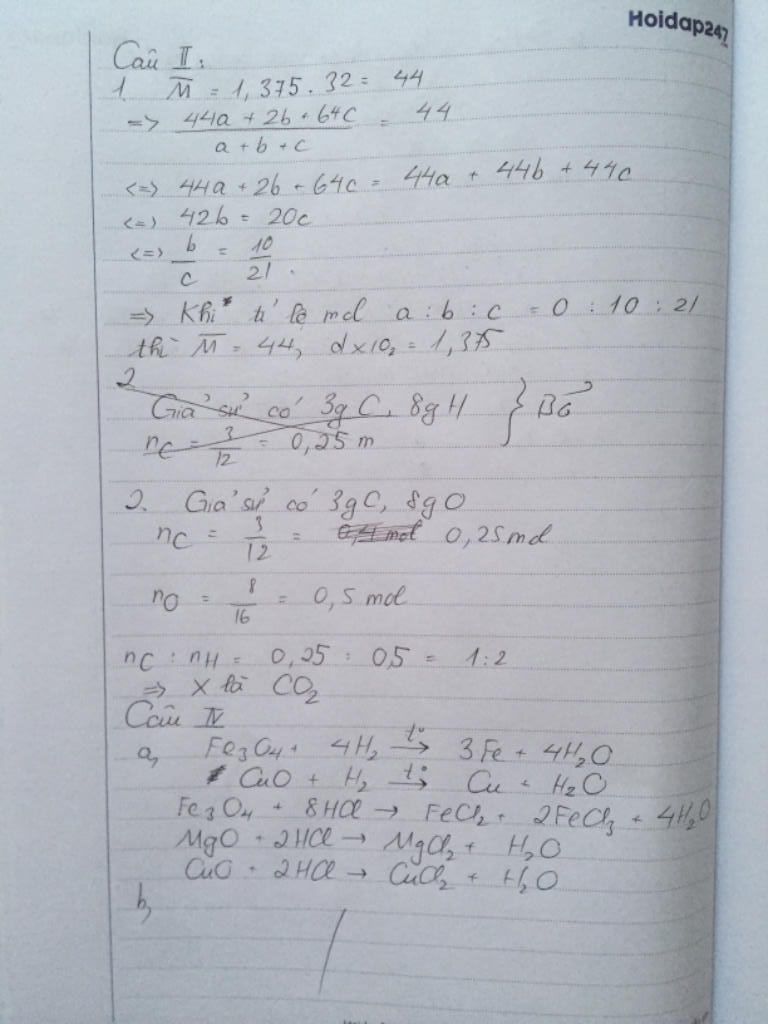 Hoidap247
Câu II:
1. M̅ = 1,375 . 32 = 44
=> (44a + 2b + 64c)/(a + b + c) = 44
<=> 44a + 2b + 64c = 44a + 44b + 44c
<=> 42b = 20c
<=> b/c = 10/21.
=> Khi tỉ lệ mol a : b : c = 0 : 10 : 21
thì M̅ = 44, d x/O₂ = 1,375
2
Giả sử có 3g C, 8g H } Bỏ
nC = 3/12 = 0,25 m
2. Giả sử có 3g C, 8g O
nC = 3/12 = 0,4 mol 0,25 mol
nO = 8/16 = 0,5 mol
nC : nH = 0,25 : 0,5 = 1:2
=> X là CO₂
Câu IV
a, Fe₃O₄ + 4H₂ -t°-> 3Fe + 4H₂O
CuO + H₂ -t°-> Cu + H₂O
Fe₃O₄ + 8HCl → FeCl₂ + 2FeCl₃ + 4H₂O
MgO + 2HCl → MgCl₂ + H₂O
CuO + 2HCl → CuCl₂ + H₂O
b,